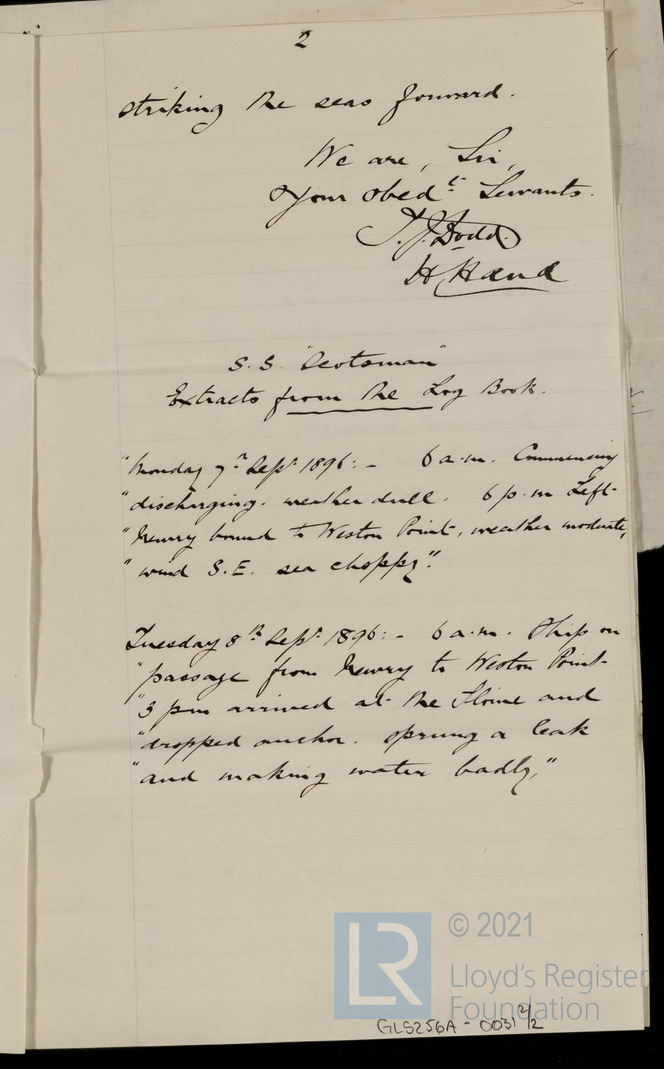 2
striking the seas forward.
We are, Sir,
Your obedt Servants.
T. J. Dodd.
H Hand
S.S. "Scotsman"
Extracts from the Log Book.
"Monday 7th Sept 1896:- 6 a.m. Commencing
"discharging. weather dull. 6 p.m Left
"Newry bound to Weston Point, weather moderate,
"wind S.E. sea choppy."
Tuesday 8th Sept 1896:- 6 a.m. Ship on
"passage from Newry to Weston Point
"3 pm arrived at the and
"dropped anchor. sprung a leak
"and making water badly,"
LR
© 2021
Lloyd's Register
Foundation
GLS256A - 0031 2/2